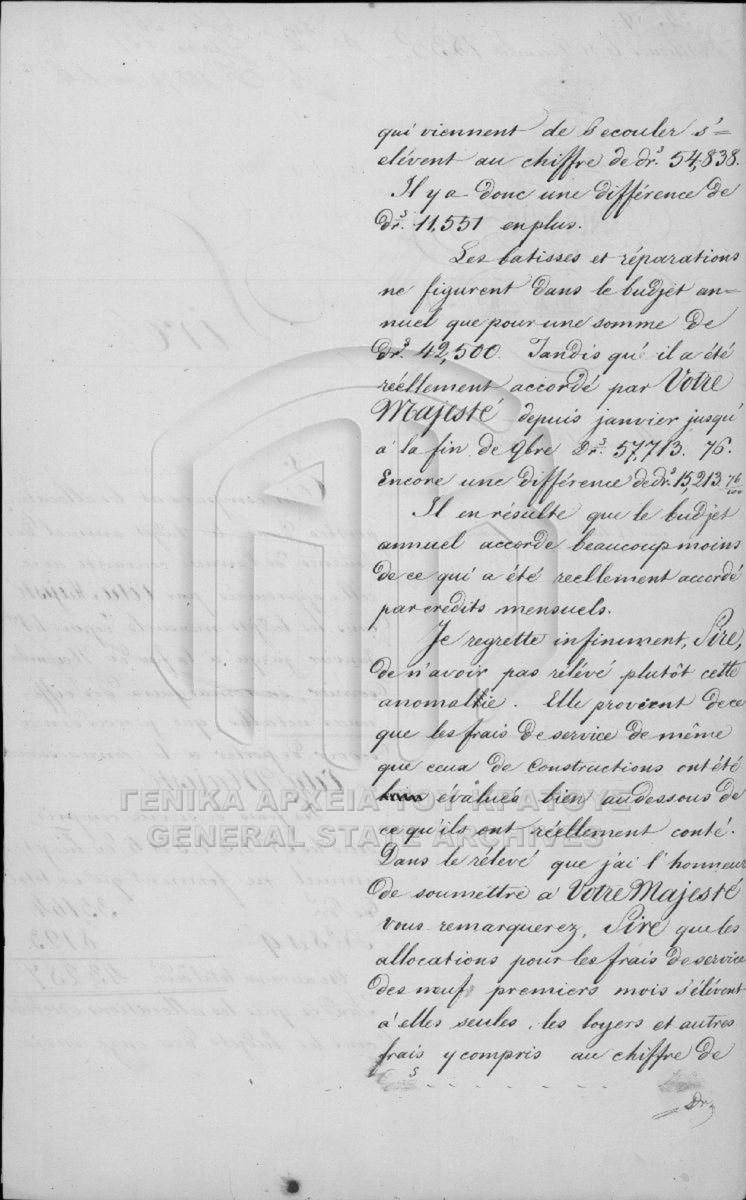 qui viennent de s'ecouler s'=
elévent au chiffre de drs. 54,838.
Il y a donc une différence de
Drs. 11,551 en plus.
Les batisses et réparations
ne figurent dans le budjet an=
nuel que pour une somme de
Drs. 42,500. Tandis qu'il a été
réellement accordé par Votre
Majesté depuis janvier jusqu'
á la fin de 9bre Drs. 57,713. 76.
Encore une différence de drs. 15,213. 76/100
Il en résulte que le budjet
annuel accorde beaucoup moins
de ce qui a été reellement accordé
par crédits mensuels.
Je regrette infiniment, Sire,
de n'avoir pas rélévé plutôt cette
anomalie. Elle provient de ce
que les frais de service de même
que ceux de constructions ont été
évalués bien audessous de
ce qu'ils ont réellement conté.
Dans le rélevé que j'ai l'honneur
de soumettre a Votre Majesté
vous remarquerez, Sire que les
allocations pour les frais de service
des neuf premiers mois s'élévent
á elles seules, les loyers et autres
frais y compris au chiffre de
Drs
ΓΕΝΙΚΑ ΑΡΧΕΙΑ ΤΟΥ ΚΡΑΤΟΥΣ
GENERAL STATE ARCHIVES